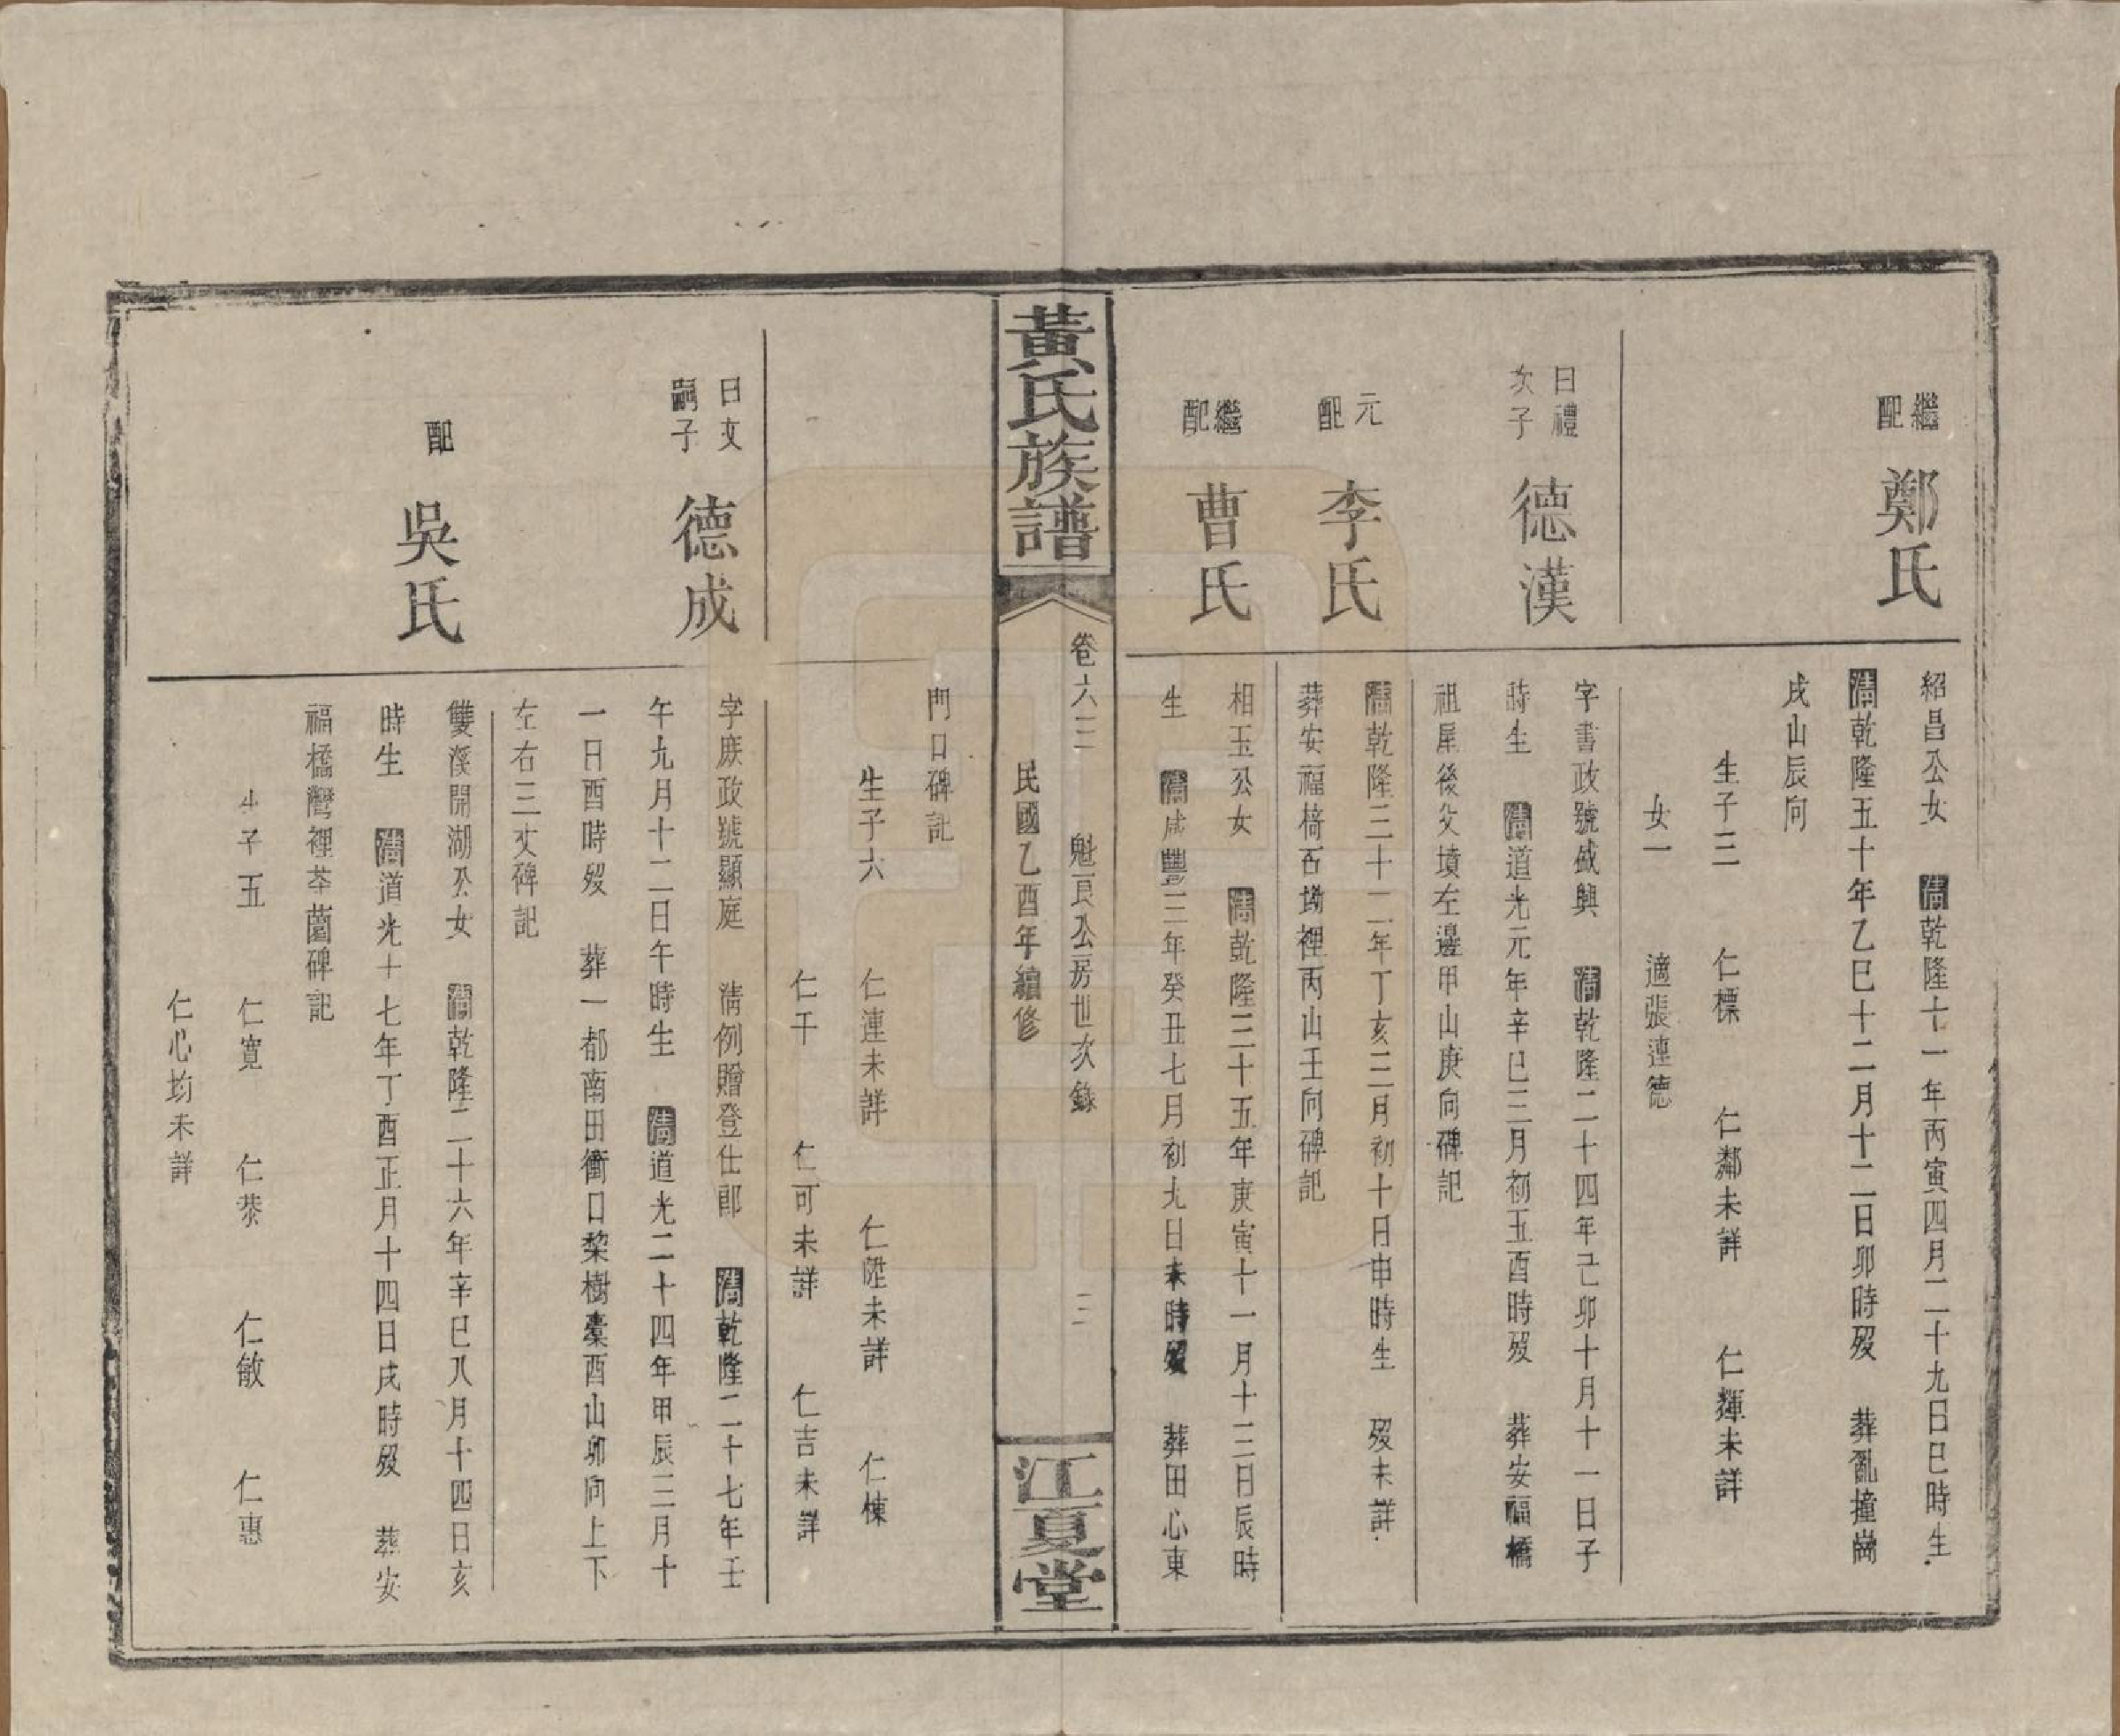 繼配
鄭氏
紹昌公女　清乾隆十一年丙寅四月二十九日巳時生
清乾隆五十年乙巳十二月十二日卯時歿　葬亂撞崗
戌山辰向
生子三　仁標　仁鄰未詳　仁輝未詳
女一　適張連德
日禮次子
德漢
字書政號盛興　清乾隆二十四年己卯十月十一日子
時生　清道光元年辛巳三月初五酉時歿　葬安福橋
祖屋後父墳左邊甲山庚向碑記
元配
李氏
清乾隆三十二年丁亥三月初十日申時生　歿未詳
葬安福橋石坳裡丙山壬向碑記
繼配
曹氏
相玉公女　清乾隆三十五年庚寅十一月十三日辰時
生　清咸豐三年癸丑七月初九日未時歿　葬田心東
黃氏族譜
卷六三　魁良公房世次錄　三
民國乙酉年續修
江夏堂
門口碑記
生子六　仁連未詳　仁陞未詳　仁棟
仁干　仁可未詳　仁吉未詳
日文嗣子
德成
字庶政號顯庭　清例贈登仕郎　清乾隆二十七年壬
午九月十二日午時生　清道光二十四年甲辰三月十
一日酉時歿　葬一都南田衝口棃樹臺酉山卯向上下
左右三丈碑記
配
吳氏
雙溪開湖公女　清乾隆二十六年辛巳八月十四日亥
時生　清道光十七年丁酉正月十四日戌時歿　葬安
福橋灣裡茶園碑記
生子五　仁寬　仁恭　仁敏　仁惠
仁心均未詳